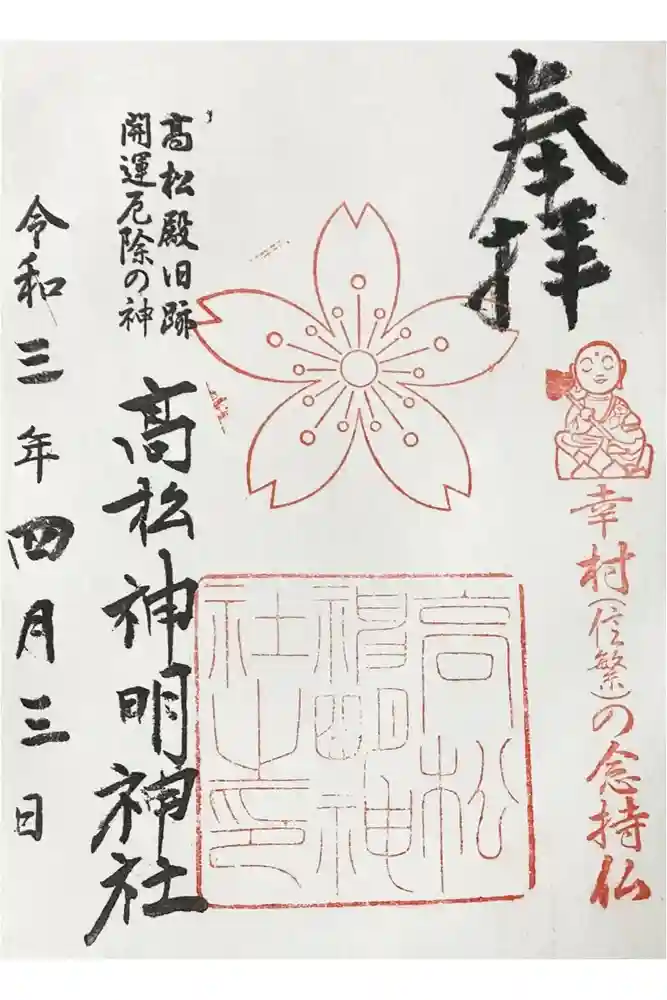 奉拝
幸村(信繁)の念持仏
高松
神明神
社之印
高松殿旧跡
開運厄除の神
高松神明神社
令和三年四月三日